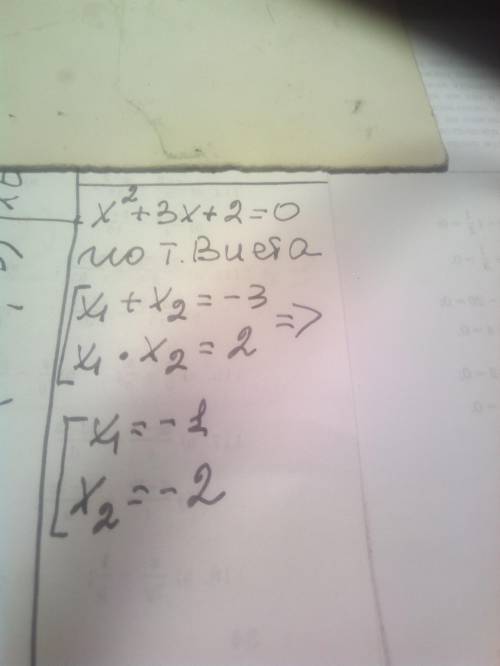 x² + 3x + 2 = 0
по т. Виета
[x₁ + x₂ = -3
x₁ • x₂ = 2 =>
[x₁ = -1
x₂ = -2